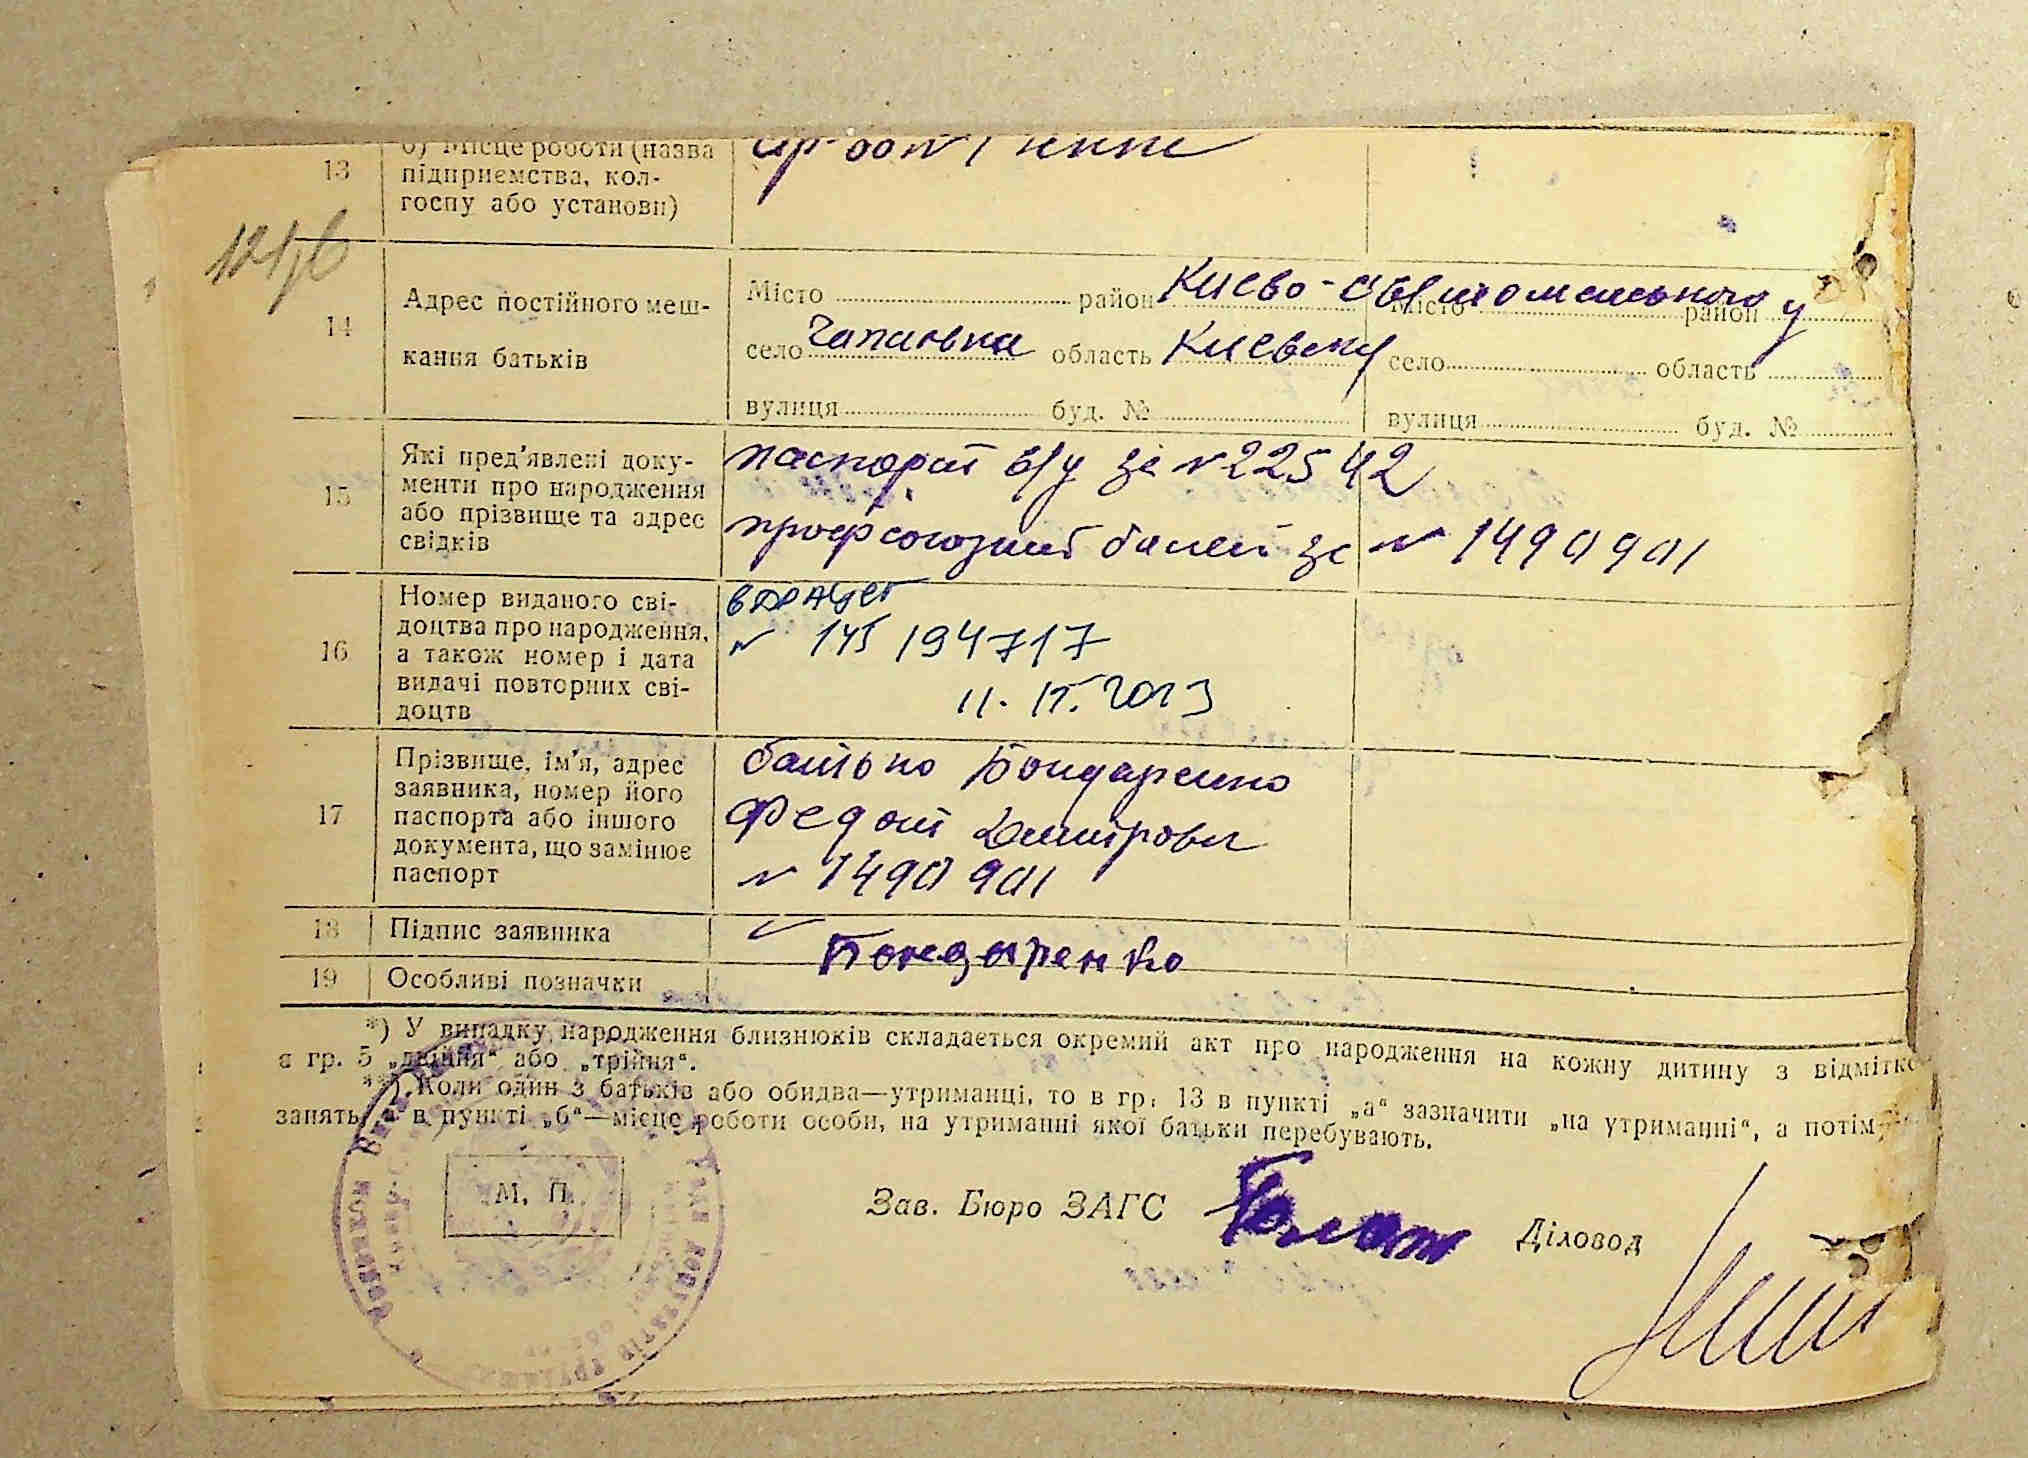 13 б) Місце роботи (назва
підприємства, кол-
госпу або установи)
14 Адрес постійного меш-
кання батьків
Місто район Києво-Святошинського у
село Чапаївка область Київську
вулиця буд. №
Місто район
село область
вулиця буд. №
15 Які пред'явлені доку-
менти про народження
або прізвище та адрес
свідків
паспорт б/у за №22542
профсоюзний билет за № 1490901
16 Номер виданого сві-
доцтва про народження,
а також номер і дата
видачі повторних сві-
доцтв
194717
2013
17 Прізвище, ім'я, адрес
заявника, номер його
паспорта або іншого
документа, що замінює
паспорт
батько Бондаренко
Федот Дмитрович
№ 1490901
18 Підпис заявника
Бондаренко
19 Особливі позначки
*) У випадку народження близнюків складається окремий акт про народження на кожну дитину з відмітко
в гр. 5 „двійня“ або „трійня“.
**) Коли один з батьків або обидва—утриманці, то в гр. 13 в пункті „а“ зазначити „на утриманні“, а потім
занять, а в пункті „б“—місце роботи особи, на утриманні якої батьки перебувають.
М. П.
Зав. Бюро ЗАГС
Діловод